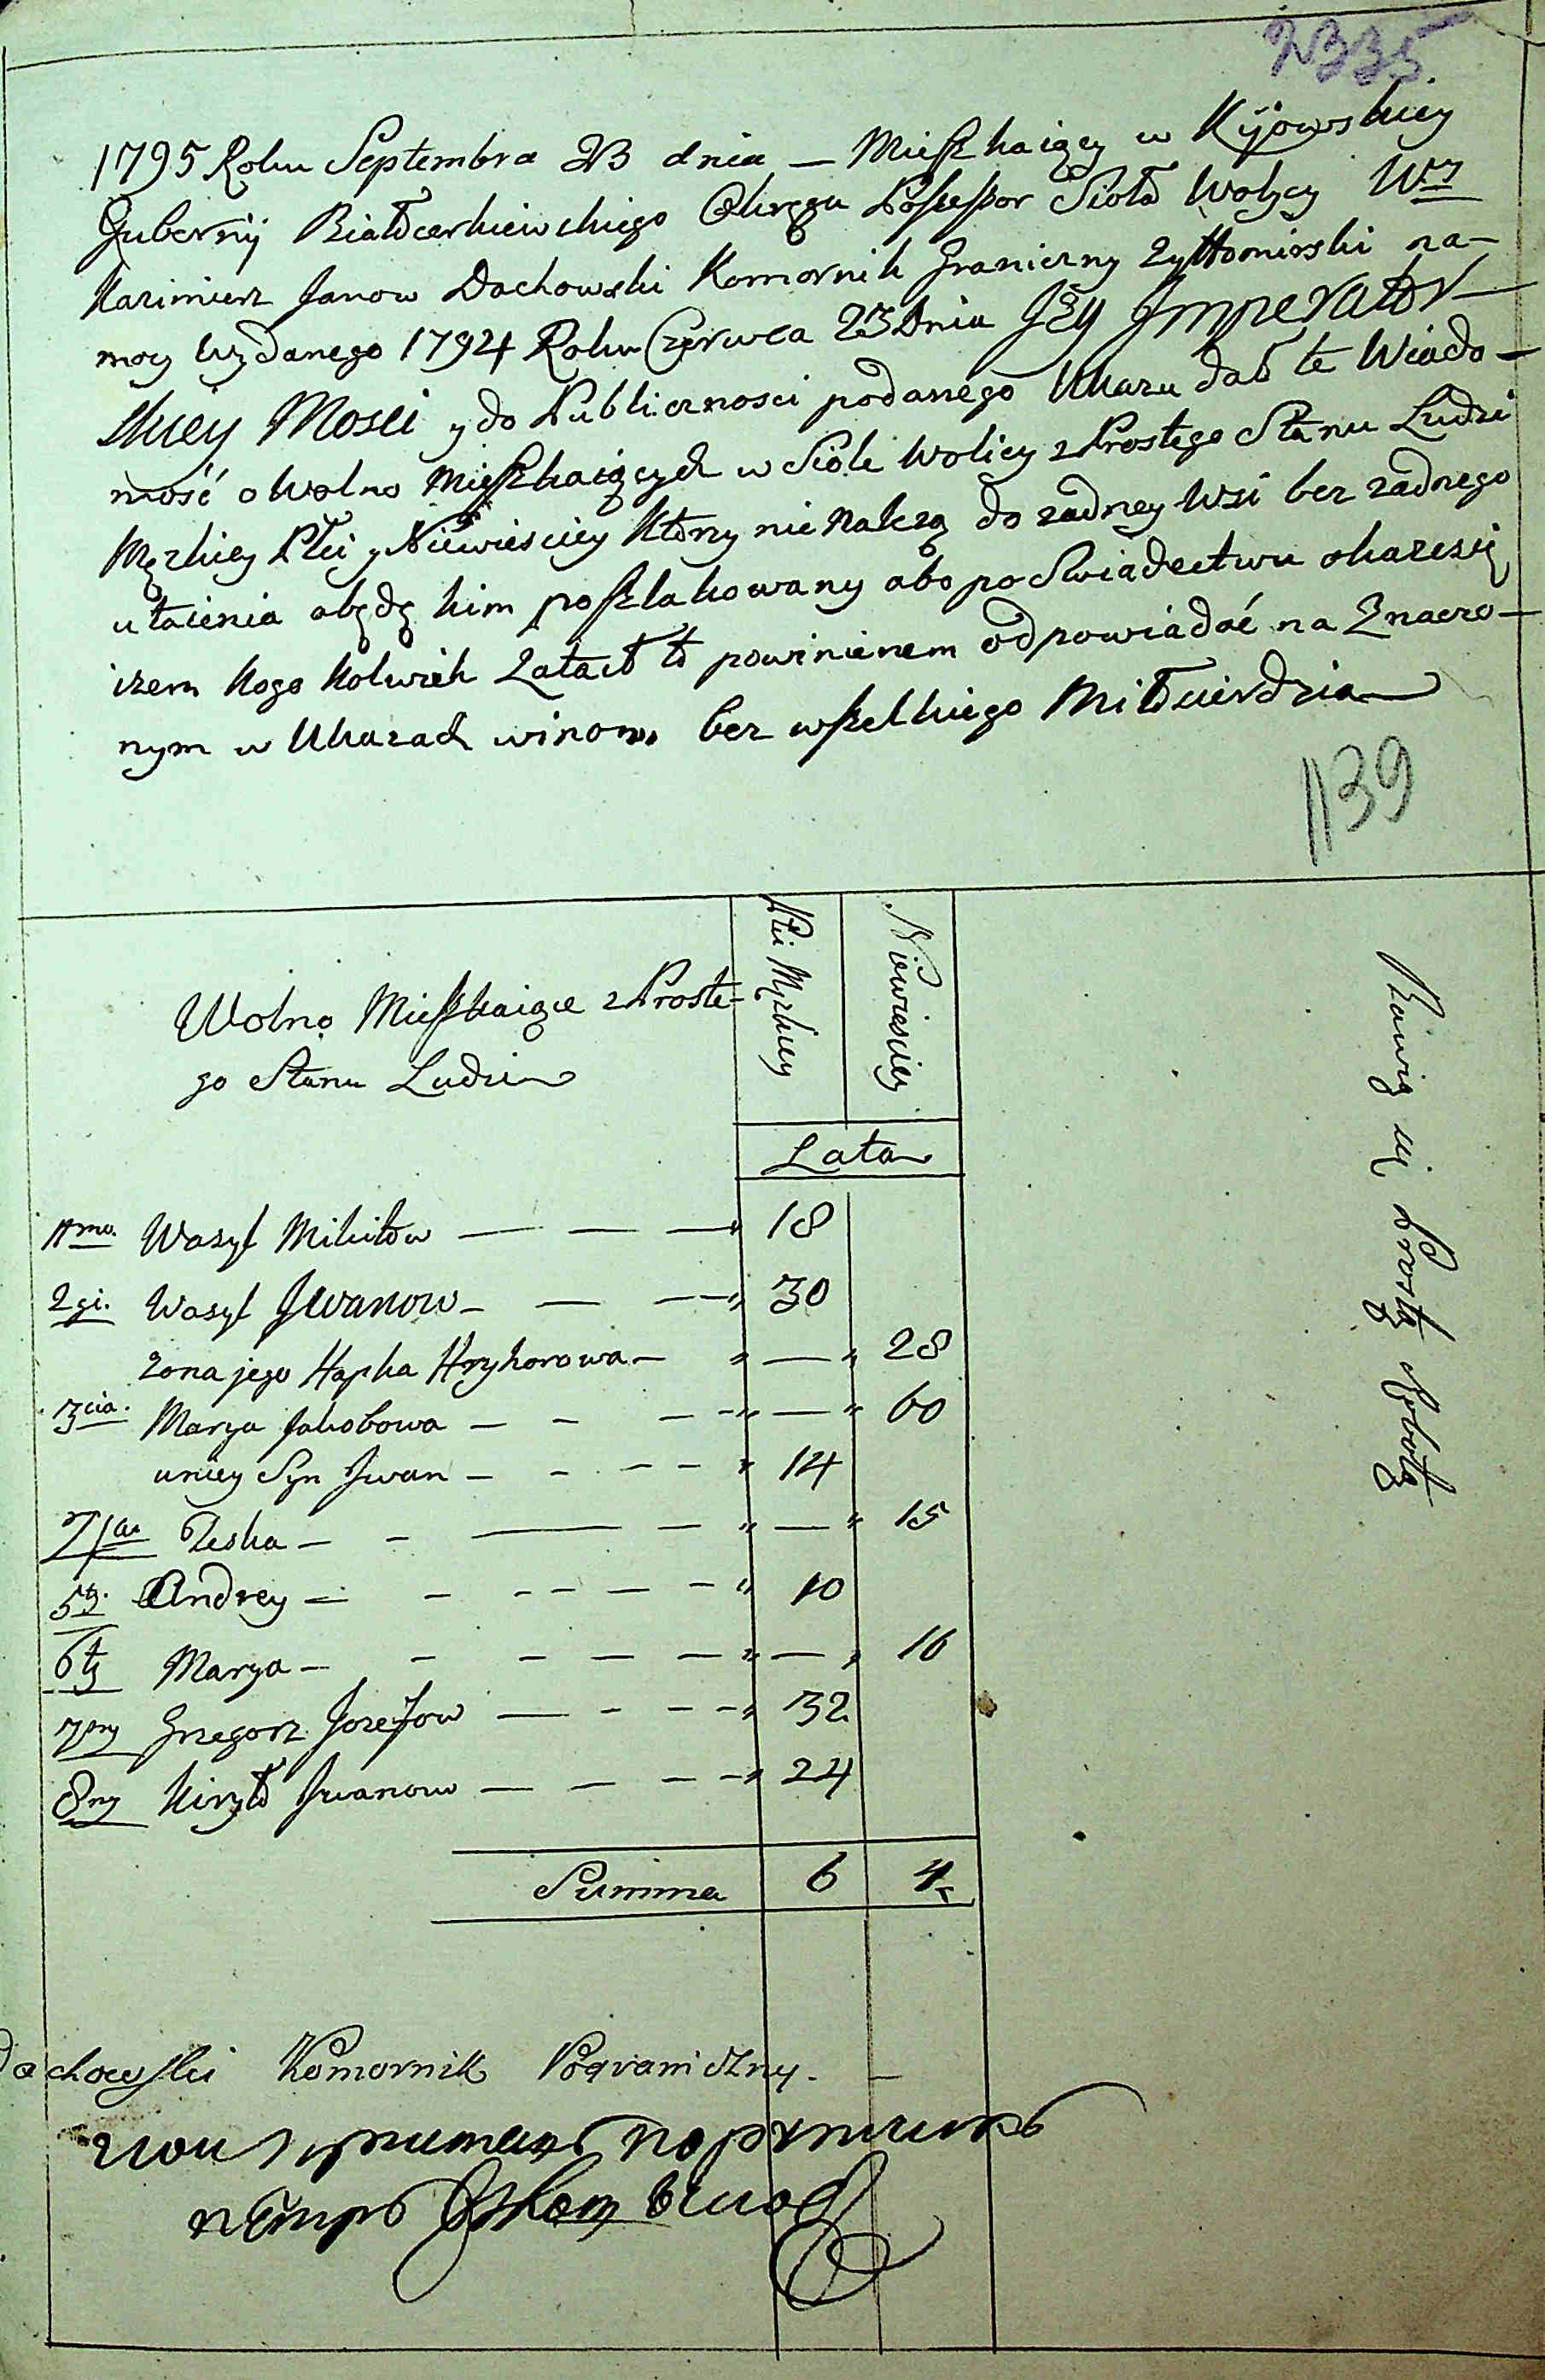 2335
1795 Roku Septembra 23 dnia — Mieszkaiący w Kijowskiey
Gubernij Białocerkiewskiego Okręgu Possessor Sioła Wolycy
Kazimierz Janow Dachowski Komornik Graniczny Zyttomirski za-
mocy wydanego 1794 Roku Czerwca 23 Dnia JEy Imperator-
skiey Mosci y do Publicznosci podanego Ukazu dał te Wiado-
mość o Wolno Mieszkaiących w Siole Wolicy z Prostego Stanu Ludzi
Męzkiey Płci y Niewiesciey Ktorzy nie Nalezą do zadney Wsi bez zadnego
utaienia a będę kim poszlakowany abo po Swiadectwu okaze się
izem kogo kolwiek Zataił to powinienem odpowiadać na Znaczo-
nym w Ukazach winom bez wszelkiego Miłosierdzia
1139
Wolno Mieszkaiące z Proste-
go Stanu Ludzie
Płci Męzkiey
Niewiesciey
Lata
Bawią się Prostą Robotą
1mo. Wasyl Mikitow — — — 18
2gi. Wasyl Jwanow — — — 30
zona jego Hapka Hryhorowa — — 28
3cia. Marya Jakobowa — — — — 60
u niey Syn Jwan — — — — 14
4ta Teska — — — — — 15
5ty. Andrey — — — — — — 10
6ty Marya — — — — — — 16
7my Grzegorz Jozefow — — — — 32
8my Kiryło Jwanow — — — — 24
Summa 6 4
Dachowski Komornik Pograniczny. —